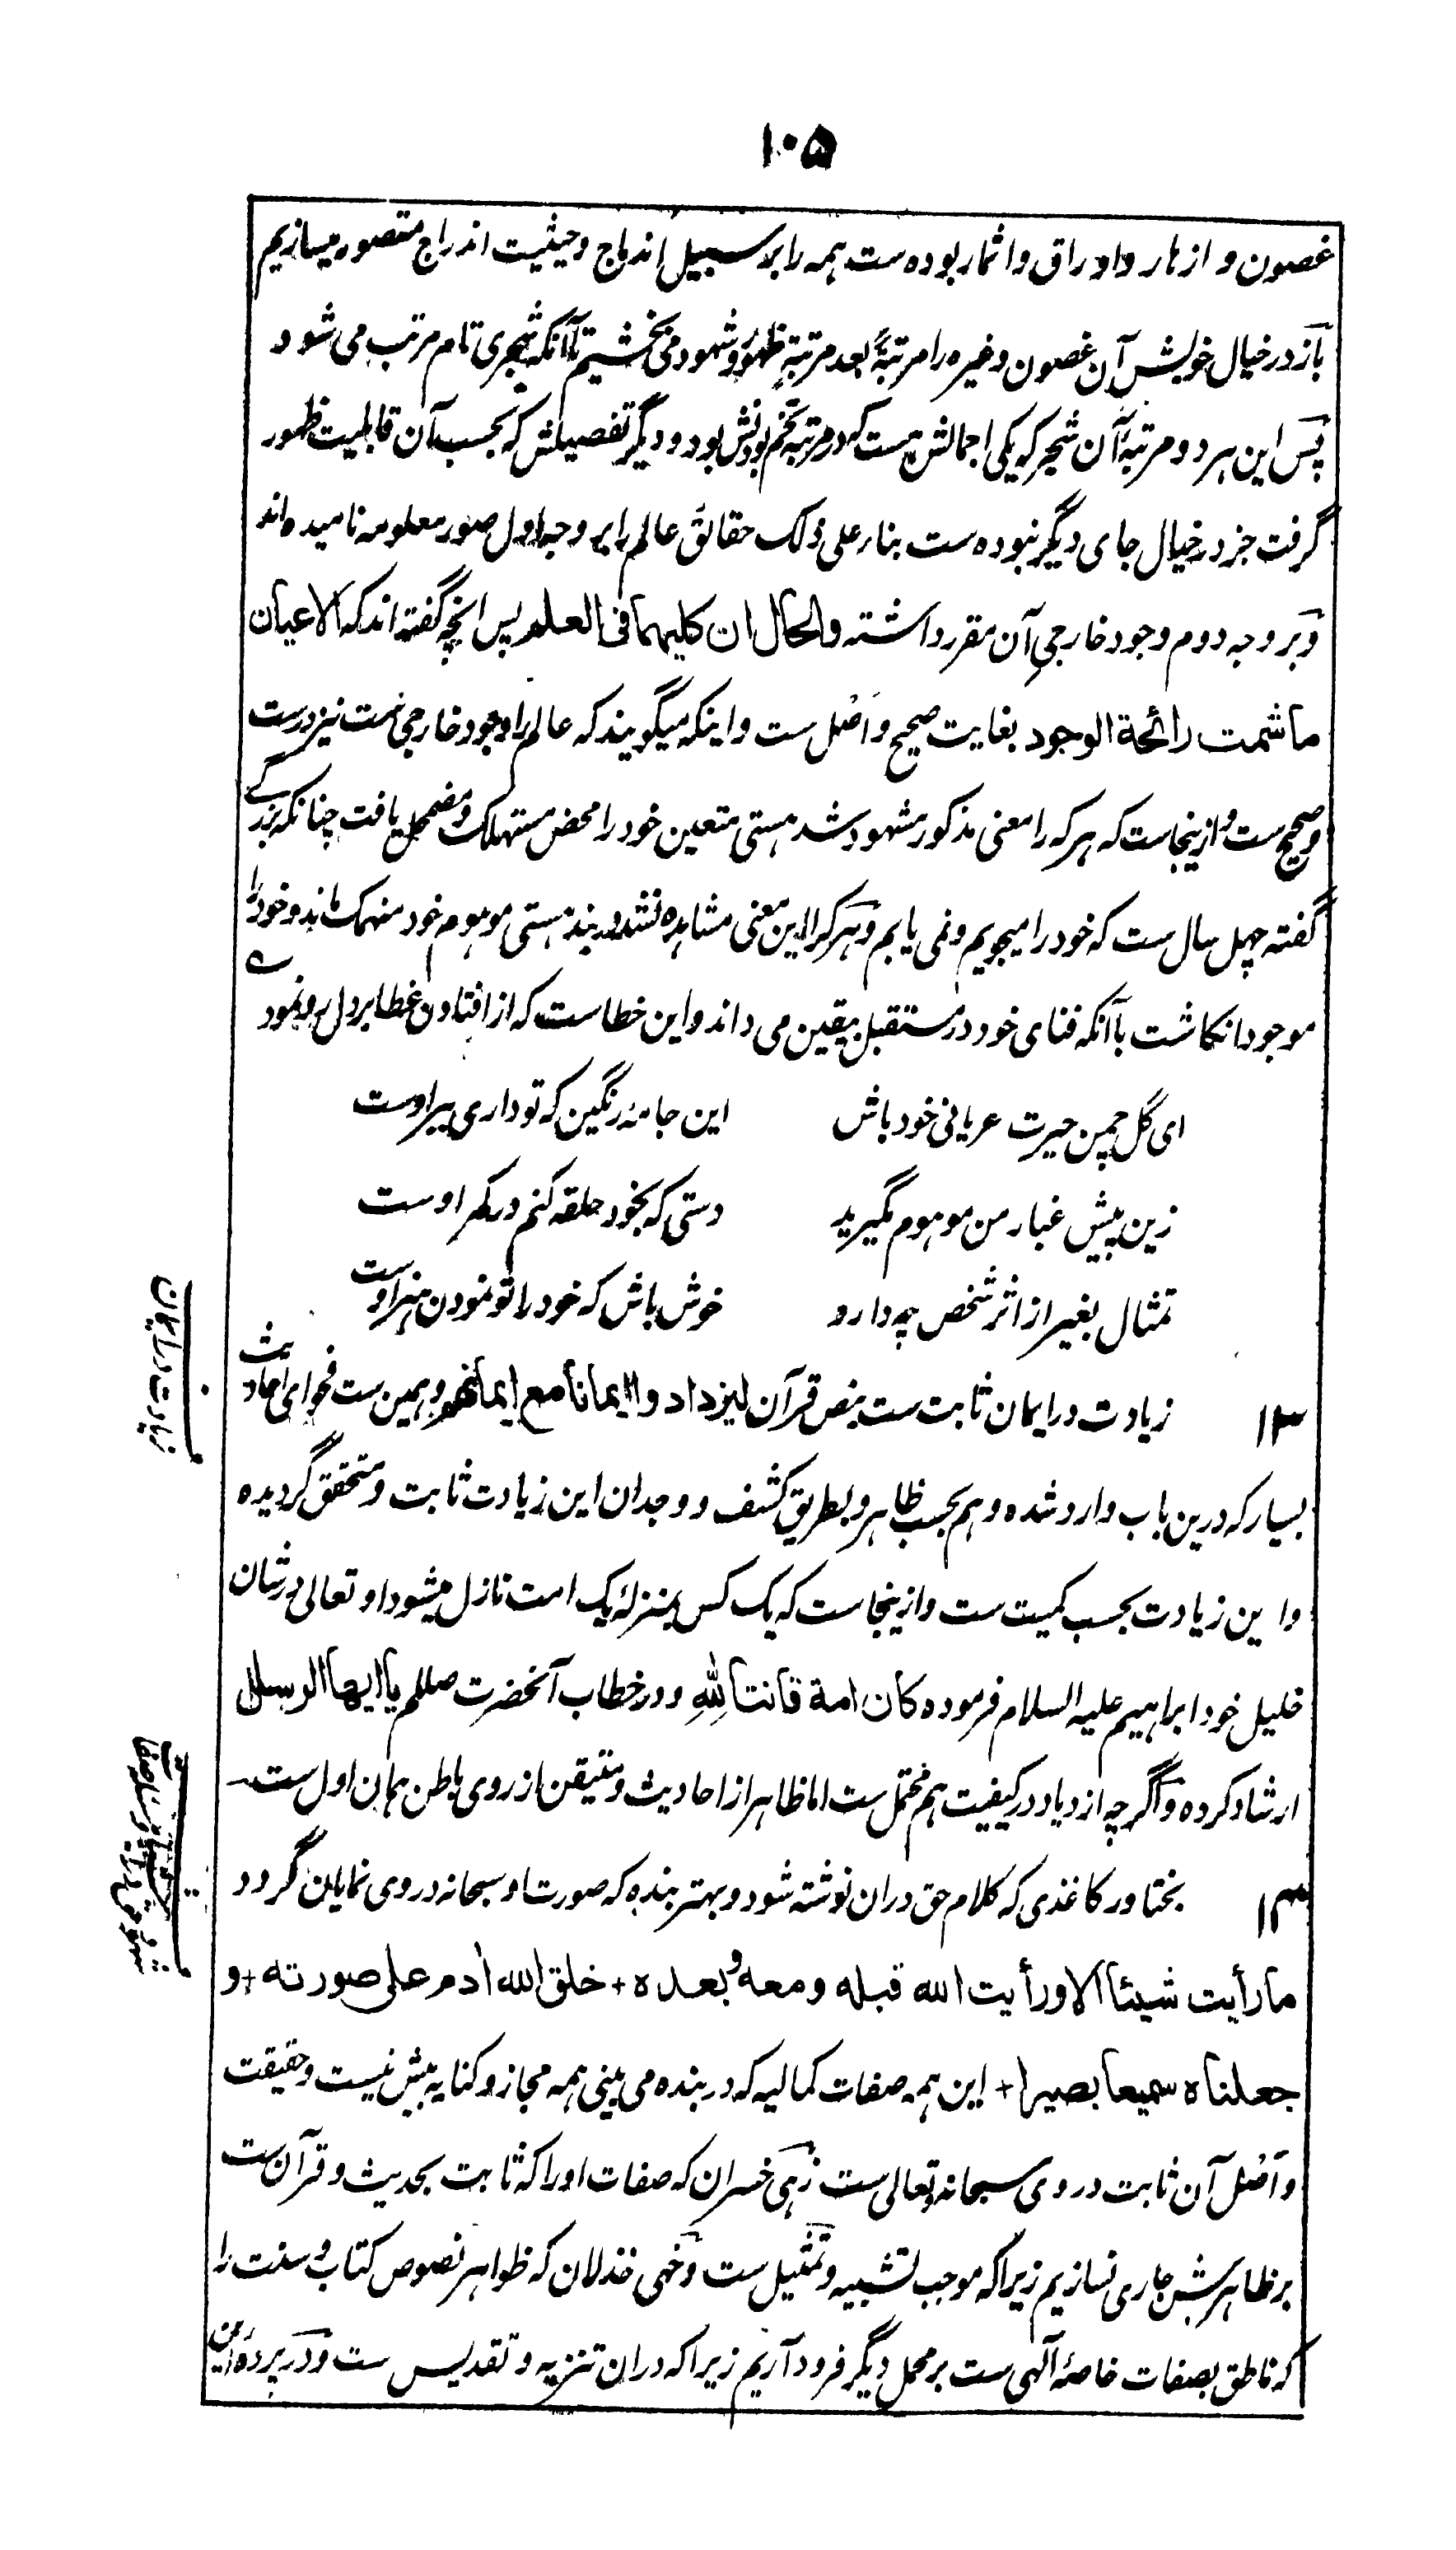 ۱۰۵
غصون و ازهار و اوراق و اثمار بوده ست همه را بر سبیل اندماج و حیثیت اندراج متصور میسازیم
باز در خیال خویش آن غصون و غیره را مرتبةً بعد مرتبةٍ ظهور و شهود می بخشیم تا آنکه شجری تام مرتب می شود
پس این هر دو مرتبۀ آن شجر که یکی اجمالش ست که در مرتبۀ تخم بودنش بود و دیگر تفصیلش که بحسب آن قابلیت ظهور
گرفت جز در خیال جای دیگر نبوده ست بناء علی ذلک حقائق عالم را بر وجه اول صور معلومه نامیده اند
و بر وجه دوم وجود خارجی آن مقرر داشته والحال ان کلیهما فی العلم پس انچه گفته اند که الاعیان
ما شمت رائحة الوجود بغایت صحیح و اصل ست و اینکه میگویند که عالم را وجود خارجی ست نیز درست
و صحیح ست و ازینجاست که هر که را معنی مذکور مشهود شد هستی متعین خود را محض مستهلک و مضمحل یافت چنانکه بزرگے
گفته چهل سال ست که خود را میجویم و نمی یابم و هر کرا این معنی مشاهده نشد در بند هستی موهوم خود منهمک ماند و خود را
موجود انگاشت با آنکه فنای خود در مستقبل بیقین می داند و این خطاست که از افتادن غطا بر دل رو نمود
ای گل چمن حیرت عریانی خود باش این جامۀ رنگین که تو داری ببر اوست
زین بیش غبار من موهوم مگیرید دستی که بخود حلقه کنم در کمر اوست
تمثال بغیر از اثر شخص چه دارد خوش باش که خود را تو نمودن هنر اوست
۱۳ زیادت در ایمان ثابت ست بنص قرآن لیزدادوا ایمانا مع ایمانهم و همین ست فحوای احادیث
زیادت در ایمان
بسیار که درین باب وارد شده و هم بحسب ظاهر و بطریق کشف و وجدان این زیادت ثابت و متحقق گردیده
و این زیادت بحسب کمیت ست و ازینجاست که یک کس بمنزلۀ یک امت نازل میشود او تعالی در شان
خلیل خود ابراهیم علیه السلام فرموده کان امة قانتا للهِ و در خطاب آنحضرت صللم یا ایها الرسل
ارشاد کرده و اگرچه ازدیاد در کیفیت هم محتمل ست اما ظاهر از احادیث و متیقن از روی باطن همان اول ست
۱۴ بختاور کاغذی که کلام حق دران نوشته شود و بهتر بنده که صورت او سبحانه در وی نمایان گردد
ما رأیت شیئا الا و رأیت الله قبله و معه و بعده + خلق الله آدم علی صورته + و
جعلناه سمیعا بصیرا + این همه صفات کمالیه که در بنده می بینی همه مجاز و کنایه بیش نیست و حقیقت
و اصل آن ثابت در وی سبحانه و تعالی ست زهی خسران که صفات او را که ثابت بحدیث و قرآن ست
بر ظاهرش جاری نسازیم زیرا که موجب تشبیه و تمثیل ست و خهی خذلان که ظواهر نصوص کتاب و سنت را
که ناطق بصفات خاصۀ آلهی ست بر محمل دیگر فرود آریم زیرا که دران تنزیه و تقدیس ست و در پردۀ این